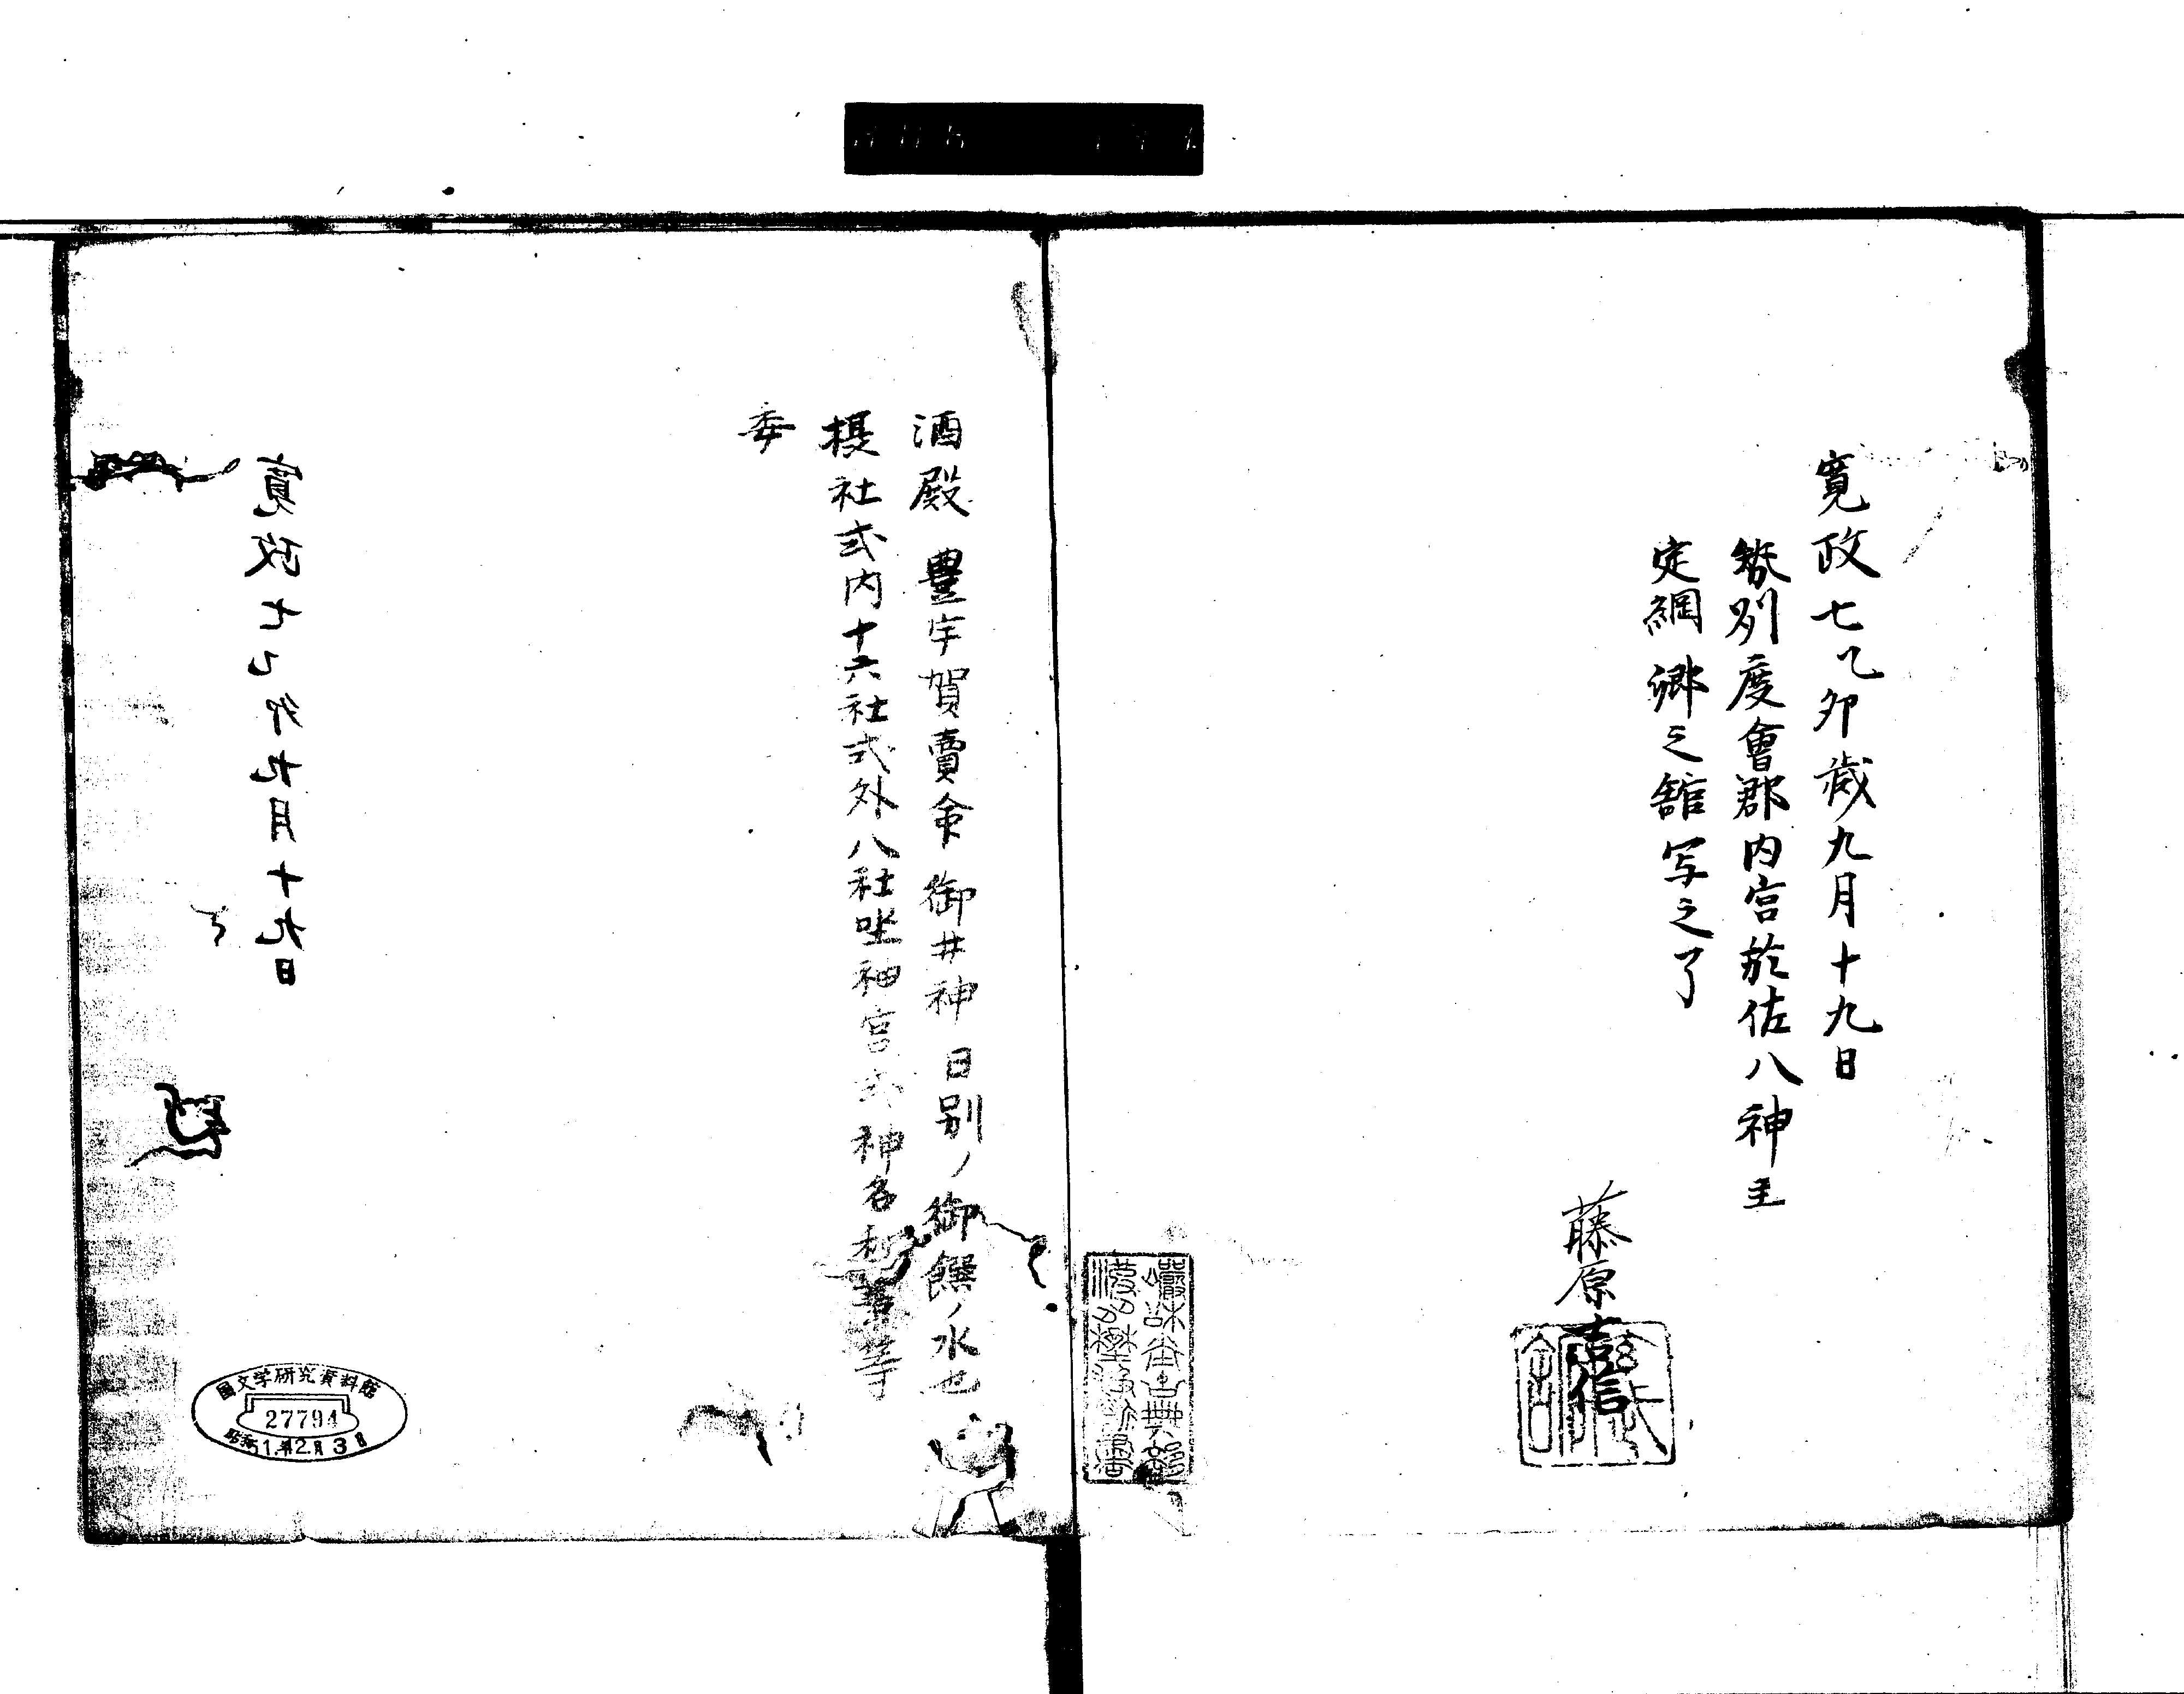 寛政七乙卯歳九月十九日
勢刕度會郡内宮於佐八神主
定綱郷之舘写之了
藤原吉信
酒殿 豊宇賀賣命 御井神 日別ノ御饌ノ水也
摂社式内十六社式外八社坐神宮式神名秘書等
委
寛政七乙卯九月十九日
国文学研究資料館
27794
昭和51.12.3日